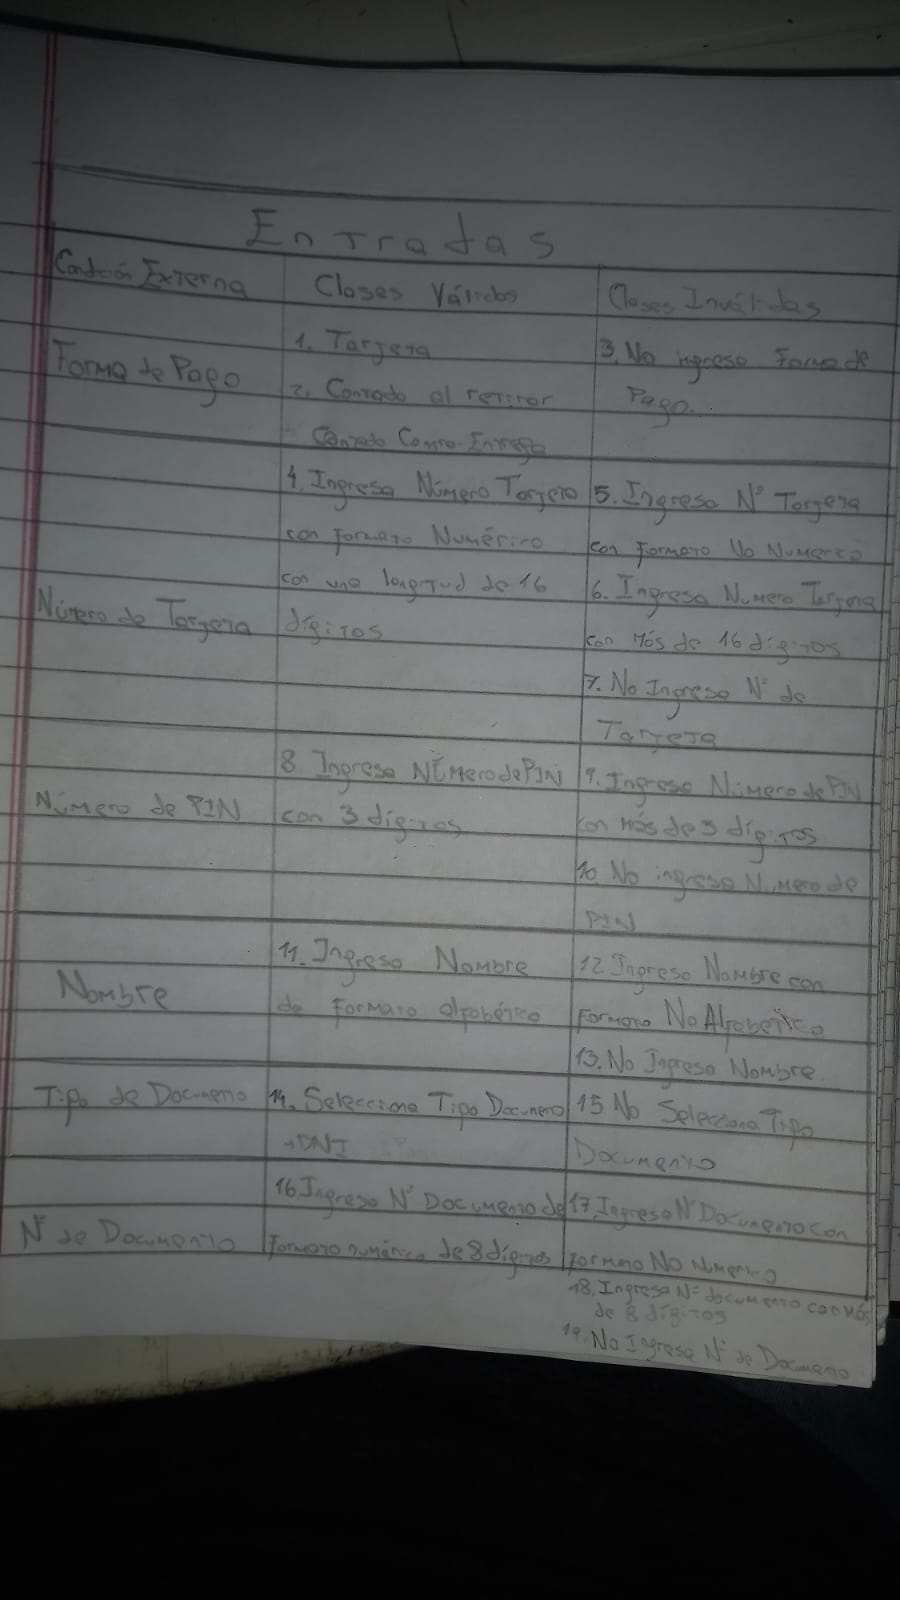 Entradas
Condición Externa
Clases Válidas
Clases Inválidas
Forma de Pago
1. Tarjeta
2. Contado al retirar
Contado Contra-Entrega
3. No ingresa Forma de
Pago.
Número de Tarjeta
4. Ingresa Número Tarjeta
con formato Numérico
con una longitud de 16
dígitos
5. Ingresa N° Tarjeta
con Formato No Numerico
6. Ingresa Numero Tarjeta
con Más de 16 digitos
7. No Ingresa N° de
Tarjeta
Número de PIN
8. Ingresa Número de PIN
con 3 dígitos
9. Ingresa Número de PIN
con Más de 3 dígitos
10. No ingresa Numero de
PIN
Nombre
11. Ingresa Nombre
de Formato alfabético
12 Ingresa Nombre con
Formato No Alfabetico
13. No Ingresa Nombre.
Tipo de Documeno
14. Selecciona Tipo Documeno
→DNI
15 No Selecciona Tipo
Documento
N° de Documento
16 Ingresa N° Documento de
formato numérico de 8 dígitos
17. Ingresa N° Documento con
formato No Numerico
18. Ingresa N° documento con Más
de 8 dígitos
19. No Ingresa N° de Documeno